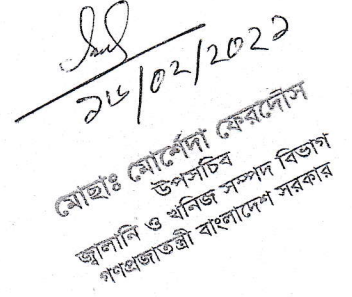 ১৮/০২/২০২১
মোছাঃ মোর্শেদা ফেরদৌস
উপসচিব
জ্বালানি ও খনিজ সম্পদ বিভাগ
গণপ্রজাতন্ত্রী বাংলাদেশ সরকার